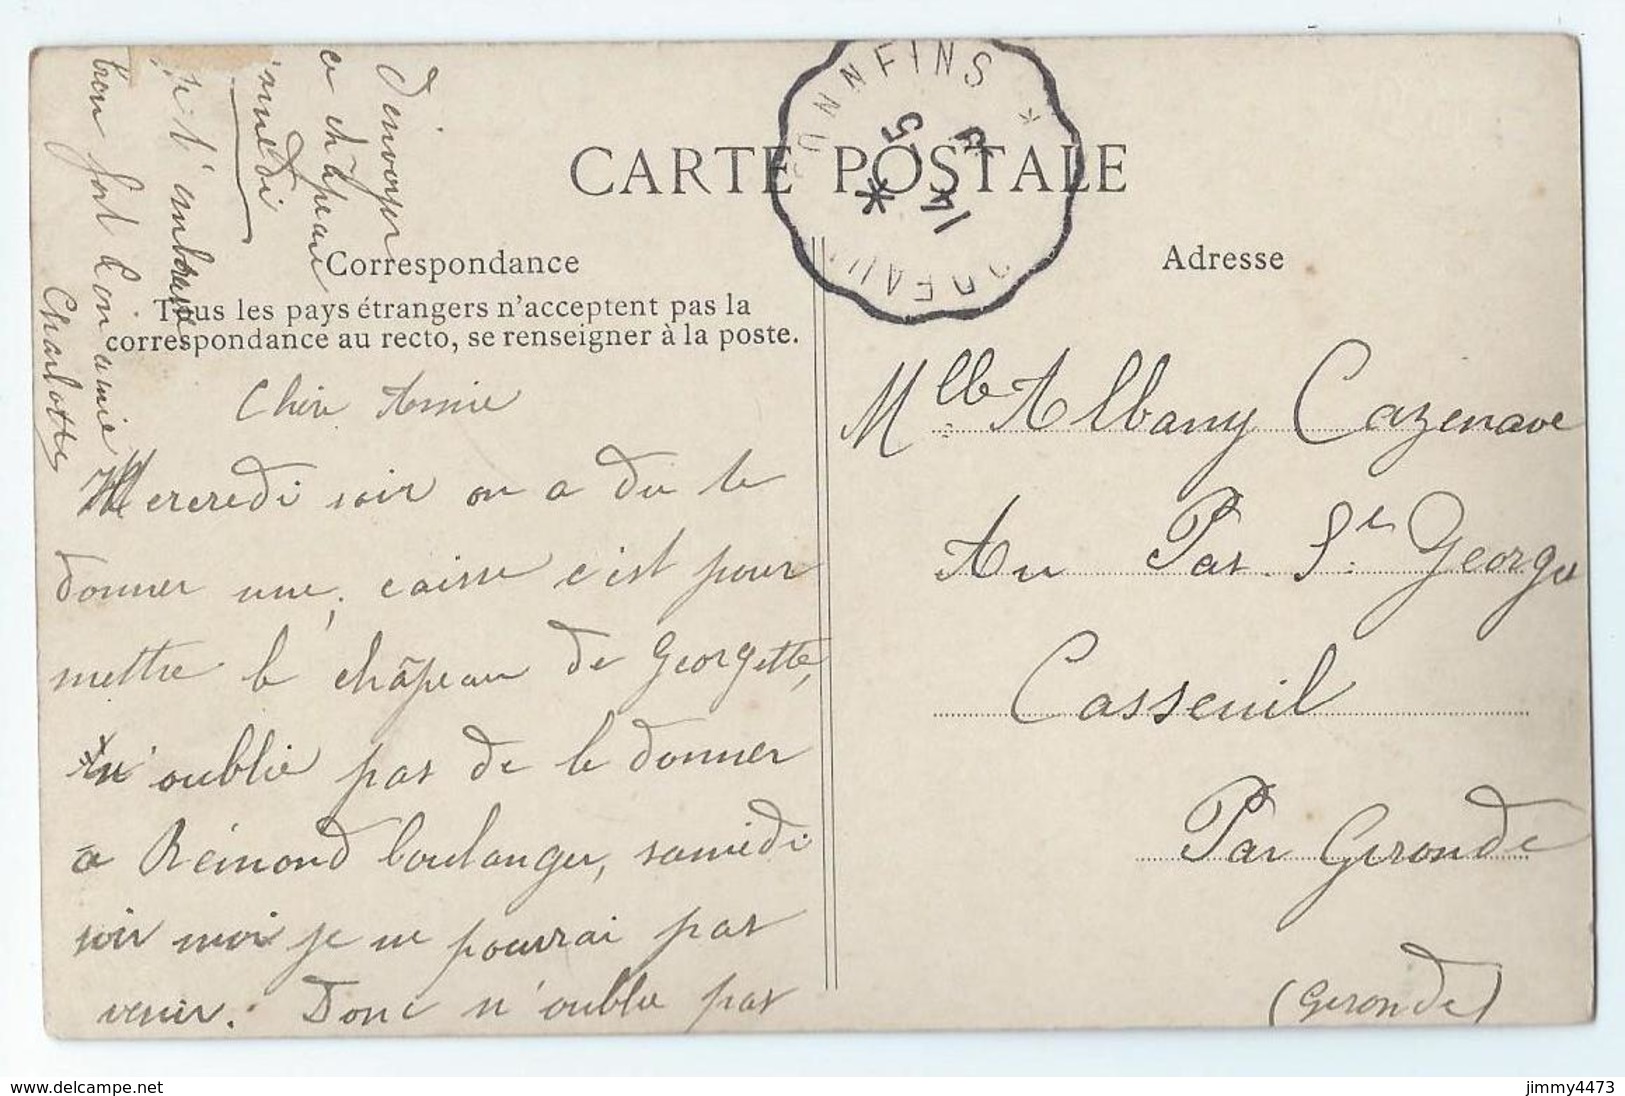 CARTE POSTALE
Correspondance
Tous les pays étrangers n'acceptent pas la
correspondance au recto, se renseigner à la poste.
Adresse
Chère Amie
Mercredi soir on a du te
donner une caisse c'est pour
mettre le châpeau de Georgette,
n'oublie pas de le donner
a Rémond boulanger, samedi
soir moi je ne pourrai pas
venir. Donc n'oublie pas
d'envoyer
ce châpeau
samedi
je t'embrasse
bien fort ton amie
Charlotte
Mlle Albany Cazenave
Au Pas St Georges
Casseuil
Par Gironde
(Gironde)
www.delcampe.net
jimmy4473